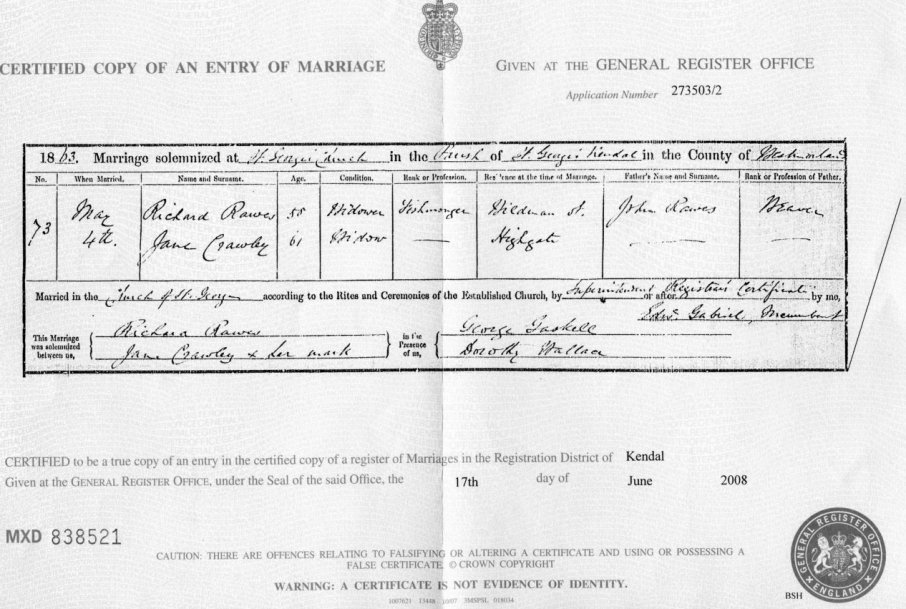 CERTIFIED COPY OF AN ENTRY OF MARRIAGE
GIVEN AT THE GENERAL REGISTER OFFICE
Application Number 273503/2
1863. Marriage solemnized at St. George's Church in the Parish of St. George's Kendal in the County of Westmorland
No. When Married. Name and Surname. Age. Condition. Rank or Profession. Residence at the time of Marriage. Father's Name and Surname. Rank or Profession of Father.
73 May 4th. Richard Rawes 55 Widower Fishmonger Wildman St. John Rawes Weaver
Jane Crawley 61 Widow — Highgate — —
Married in the Church of St. George according to the Rites and Ceremonies of the Established Church, by Superintendent Registrar's Certificate or after by me,
Edw. Gabriel, Incumbent
This Marriage was solemnized between us,
Richard Rawes
Jane Crawley x her mark
in the Presence of us,
George Gaskell
Dorothy Wallace
CERTIFIED to be a true copy of an entry in the certified copy of a register of Marriages in the Registration District of Kendal
Given at the GENERAL REGISTER OFFICE, under the Seal of the said Office, the 17th day of June 2008
MXD 838521
CAUTION: THERE ARE OFFENCES RELATING TO FALSIFYING OR ALTERING A CERTIFICATE AND USING OR POSSESSING A
FALSE CERTIFICATE. © CROWN COPYRIGHT
WARNING: A CERTIFICATE IS NOT EVIDENCE OF IDENTITY.
GENERAL REGISTER OFFICE
ENGLAND
BSH